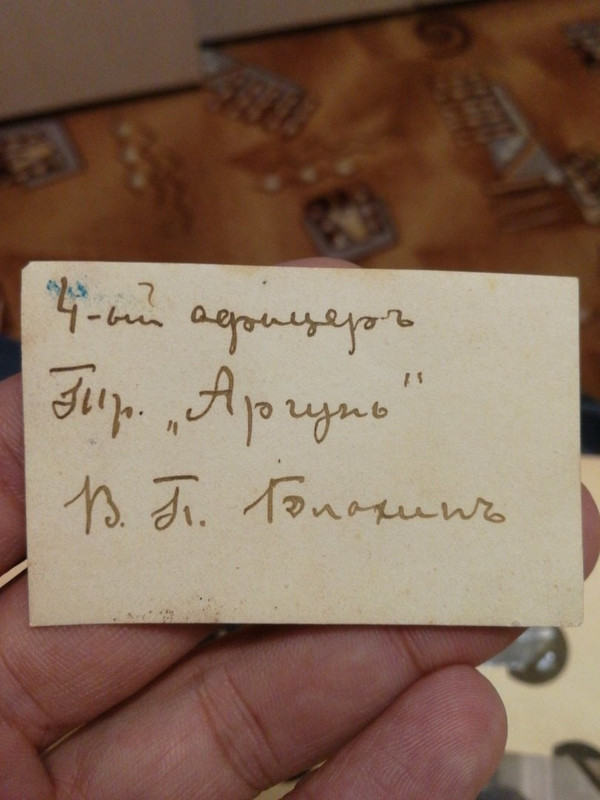 4-ый офицеръ
Тр. „Аргунь"
В. П. Блохинъ